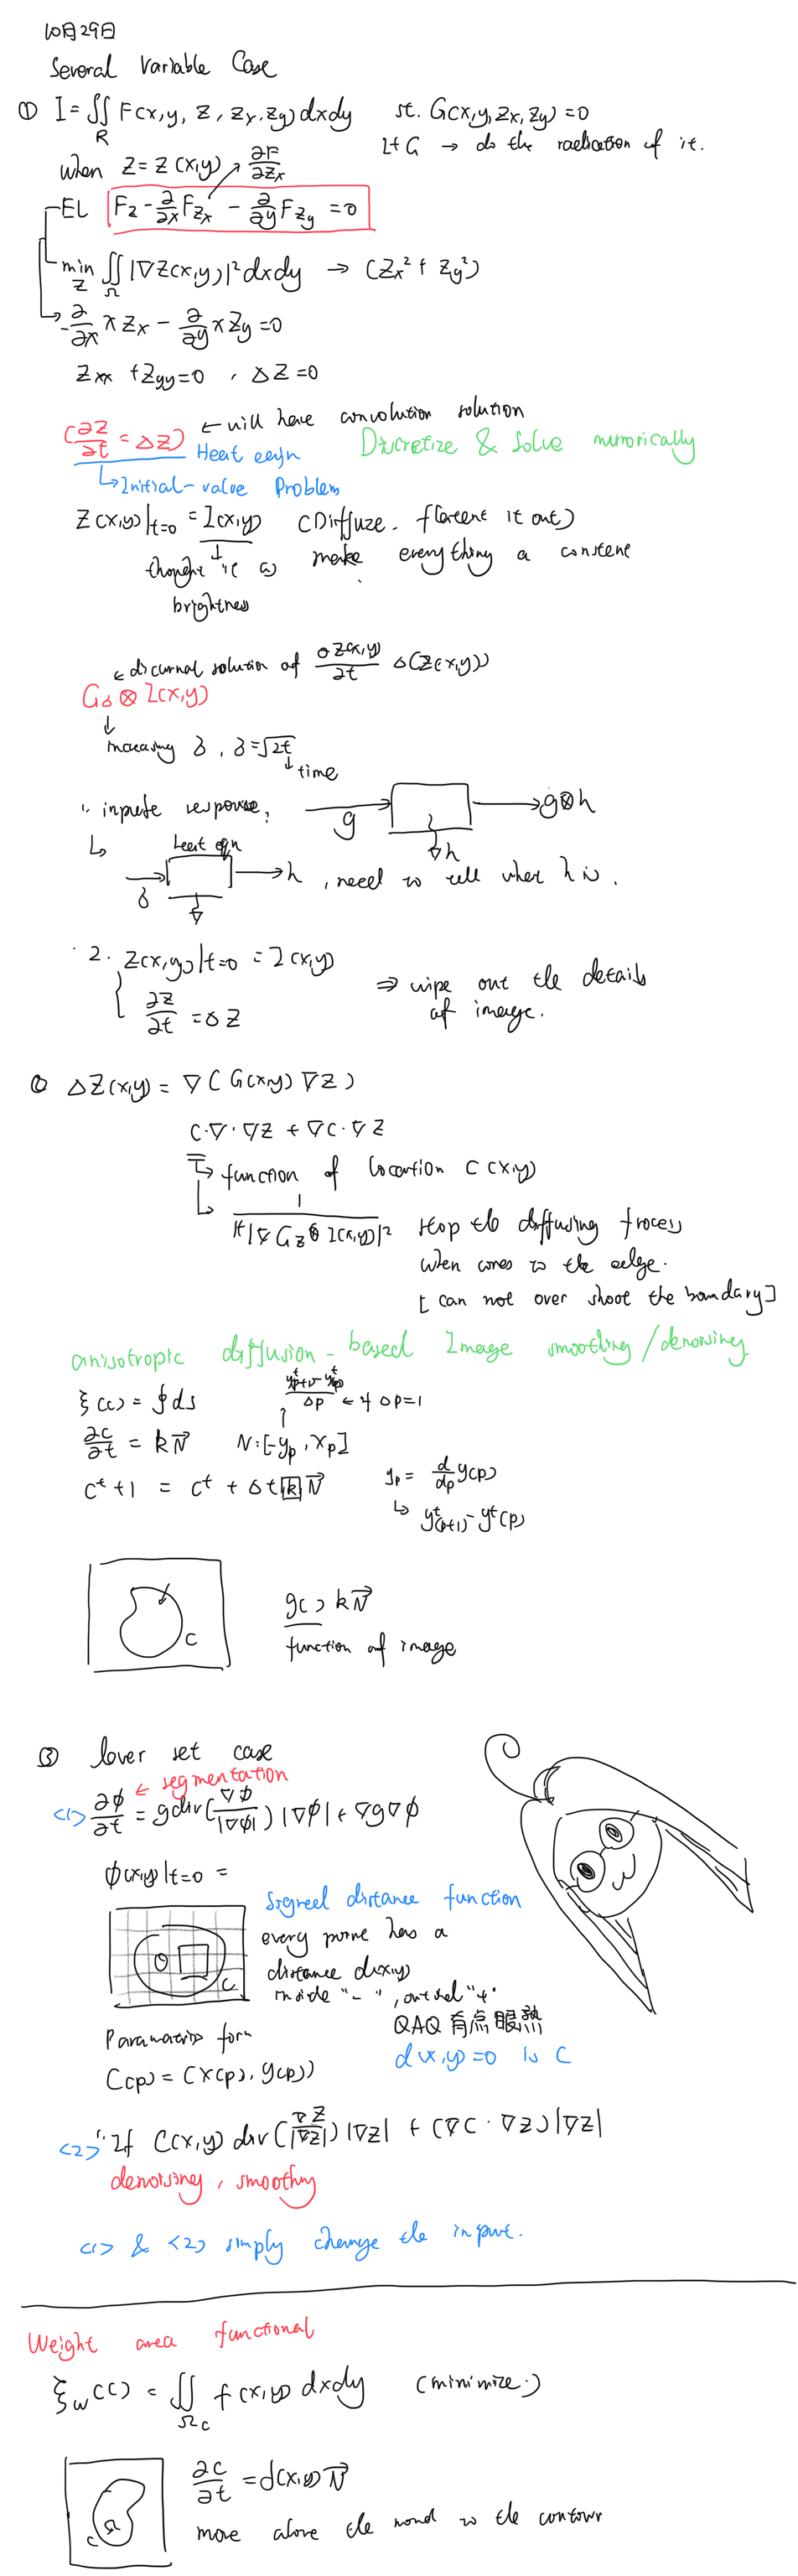 10月29日
Several Variable Case
① I = ∬_R F(x,y, z, zx, zy) dxdy st. G(x,y,zx,zy) = 0
→ do the of it.
when Z = Z(x,y) ∂F/∂Zx
EL Fz - ∂/∂x Fzx - ∂/∂y Fzy = 0
min_Z ∬_Ω |∇Z(x,y)|² dxdy → (Zx² + Zy²)
-∂/∂x x Zx - ∂/∂y x Zy = 0
Zxx + Zyy = 0 , ΔZ = 0
(∂Z/∂t = ΔZ) ← will have convolution solution
Heat eqn Discretize & Solve numorically
↳ Initial-value Problem
Z(x,y)|t=0 = I(x,y) (Diffuze. flatent it out)
thought it as make everything a constent
brightness
← solution of ∂Z(x,y)/∂t Δ(Z(x,y))
Gδ ⊗ I(x,y)
↓
increasing δ , δ = √2t
↓ time
1. response. g → → g⊗h
▽h
↳ heat eqn
δ → → h , need to tell what h is.
2. Z(x,y)|t=0 = I(x,y)
∂Z/∂t = ΔZ ⇒ wipe out the details
of image.
② ΔZ(x,y) = ∇(G(x,y) ∇Z)
C·∇·∇Z + ∇C·∇Z
↳ function of location C(x,y)
↳ 1/(1+|∇Gz⊗I(x,y)|²) stop the diffusing process
when comes to the edge.
[can not over shoot the boundary]
anisotropic diffusion-based Image smoothing/denoising
ξ(c) = ∮ds (y^t(p+1) - y^t(p))/Δp ← if Δp=1
∂c/∂t = kN⃗ N:[-yp, xp]
c^t+1 = c^t + Δt k N⃗ yp = d/dp y(p)
↳ y^t(p+1) - y^t(p)
C
g( ) kN⃗
function of image
③ lever set case
← segmentation
<1> ∂ϕ/∂t = g div(∇ϕ/|∇ϕ|) |∇ϕ| + ∇g∇ϕ
ϕ(x,y)|t=0 =
Signed distance function
every point has a
distance d(x,y)
inside "-", outsid "+"
C
QAQ 有点眼熟
d(x,y)=0 is C
Parametris form
C(p) = (x(p), y(p))
<2> If C(x,y) div(∇Z/|∇Z|) |∇Z| + (∇C · ∇Z)|∇Z|
denoising, smoothing
<1> & <2> simply change the input.
Weight area functional
ξw(C) = ∬_Ωc f(x,y) dxdy (minimize.)
∂c/∂t = d(x,y) N⃗
C Ω
move alone the to the contour